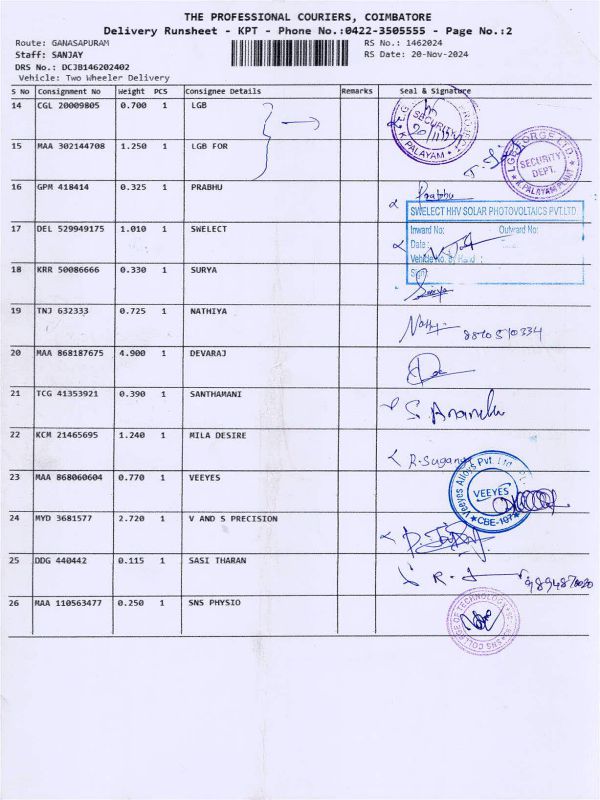 THE PROFESSIONAL COURIERS, COIMBATORE
Delivery Runsheet - KPT - Phone No.:0422-3505555 - Page No.:2
Route: GANASAPURAM RS No.: 1462024
Staff: SANJAY RS Date: 20-Nov-2024
DRS No.: DCJB146202402
Vehicle: Two Wheeler Delivery
S No Consignment No Weight PCS Consignee Details Remarks Seal & Signature
14 CGL 20009805 0.700 1 LGB
SECURITY
K. PALAYAM
15 MAA 302144708 1.250 1 LGB FOR
LGB FORGE LTD.
SECURITY
DEPT.
K.PALAYAM PLANT
16 GPM 418414 0.325 1 PRABHU Prabhu
SWELECT HHV SOLAR PHOTOVOLTAICS PVT.LTD.
17 DEL 529949175 1.010 1 SWELECT
Inward No: Outward No:
Date :
Vehicle No.
Sign
18 KRR 50086666 0.330 1 SURYA Surya
19 TNJ 632333 0.725 1 NATHIYA
20 MAA 868187675 4.900 1 DEVARAJ
21 TCG 41353921 0.390 1 SANTHAMANI
22 KCM 21465695 1.240 1 MILA DESIRE R-Sugan
23 MAA 868060604 0.770 1 VEEYES
Veeyes Alloys Pvt. Ltd.
VEEYES
CBE-107
24 MYD 3681577 2.720 1 V AND S PRECISION
25 DDG 440442 0.115 1 SASI THARAN
26 MAA 110563477 0.250 1 SNS PHYSIO
SNS COLLEGE OF TECHNOLOGY